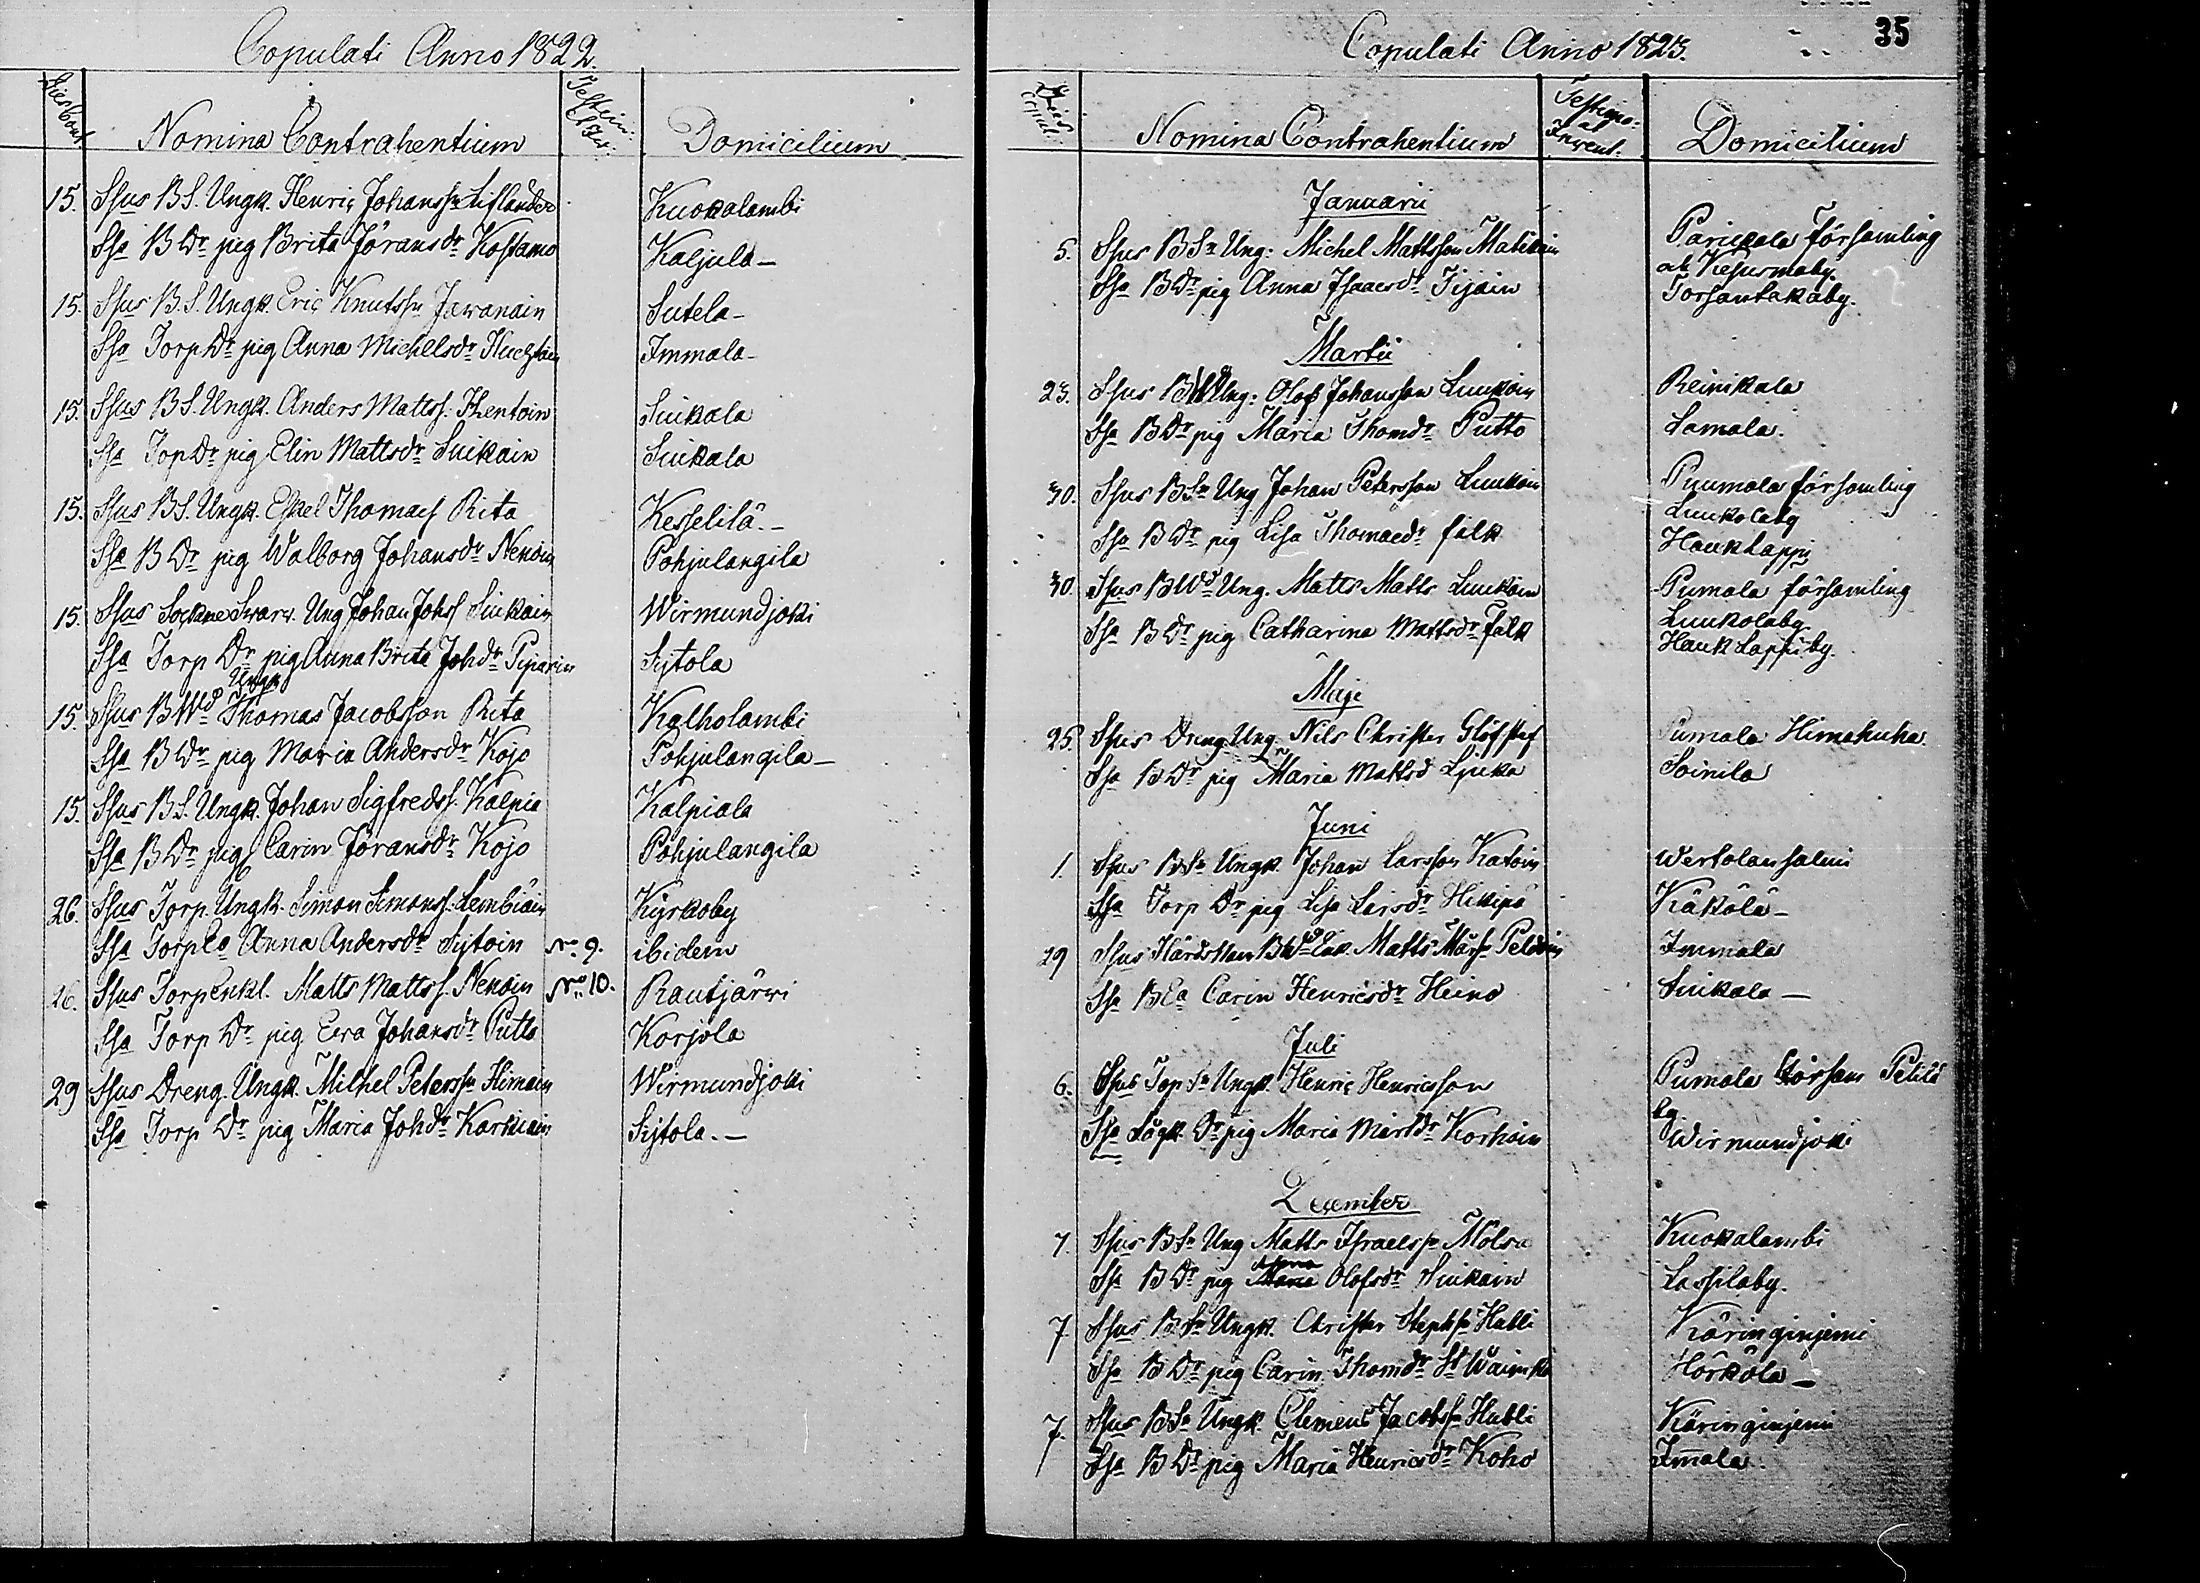 Copulati Anno 1822.
Dies Cop
Nomina Contrahentium
Domicilium
15. Spus B S. Ungk. Henric Johanss Lifländer Kuokalambi
Spa B Dr pig Brita Jöransdr Kostamo Kaljula
15. Spus B. S. Ungk. Eric Knutssn Jawanain Sutela
Spa Torp Dr pig Anna Michelsdr Immala
15. Spus B S. Ungk. Anders Mattss. Ihentoin Siukala
Spa Top Dr pig Elin Mattsdr Siukain Siukala
15. Spus B S. Ungk. Eskel Thomass Rita Kesselilä.
Spa B Dr pig Walborg Johansdr Nenoin Pohjulangila
15. Spus Sockne Swarv. Ung Johan Johss Siukain Wirmundjoki
Spa Torp Dr pig Anna Brita Johdr Piparin Sijtola
Ungk
15. Spus B Wd Thomas Jacobsson Rita Kalholambi
Spa B Dr pig Maria Andersdr Kojo Pohjulangila
15. Spus B S. Ungk. Johan Sigfredss. Kalpia Kalpiala
Spa B Dr pig Carin Jöransdr Kojo Pohjulangila
26. Spus Torp. Ungk. Simon Simonss. Lembiäin Kyrkoby
Spa Torp Ea Anna Andersdr Sijtoin No 9. ibidem
26. Spus Torp Enkl. Matts Mattss. Nenoin No 10. Rautjärwi
Spa Torp Dr pig Ewa Johansdr Putto Korjola
29 Spus Dreng. Ungk. Michel Peterssn Himain Wirmundjoki
Spa Torp Dr pig Maria Johdr Karkiain Sijtola.
35
Copulati Anno 1823.
Dies Copul.
Nomina Contrahentium
Testimo: at Invent.
Domicilium
Januarii
5. Spus B Sn Ung: Michel Mattsson Matikain Parikala Församling
at Kesusmaby
Spa B Dr pig Anna Isaacsdr Tijain Torsantakaby.
Martii
23. Spus B Ung: Olof Johansson Luukoin Reinikala
Spa B Dr pig Maria Thomdr Putto Lamala.
30. Spus B Sn Ung Johan Petersson Luukoin Puumala församling
Luukolaby
Spa B Dr pig Lisa Thomaedr falk Hauklappi
30. Spus B Wd Ung. Matts Matts Luukoin Pumala församling
Luukolaby
Spa B Dr pig Catharina Mattsdr Falk Hauk Lappi by.
Maji
25. Spus Dreng Ung. Nils Christer Glöfstaf Pumala Himahuha.
Spa B Dr pig Maria Mattsd Ljuka Soinila
Juni
1. Spus B Sn Ungk. Johan Larsson Katoin Wertolansalmi
Spa Torp Dr pig Lisa Larsdr Hikipä Käkölä
29 Spus B Wd Enk. Matts Immala
Spa B Ea Carin Henricsdr Heino Siukala
Juli
6. Spus Top Sn Ungk. Henric Henricsson Pumala Församl Petilä
by.
Spa Dr pig Maria Mårtdr Korhoin Wirmundjoki
December
7. Spus B Sn Ung Matts Israelssn Mölsa Kuokalambi
Anna
Spa B Dr pig Maria Olofsdr Siukain Lassilaby.
7. Spus B Sn Ungk. Christer Stephssn Hubli Käringinjemi
Spa B Dr pig Carin Thomdr Hörkölä
7. Spus B Sn Ungk. Clemens Jacobssn Hubli Käringinjemi
Spa B Dr pig Maria Henricsdr Koho Immala.